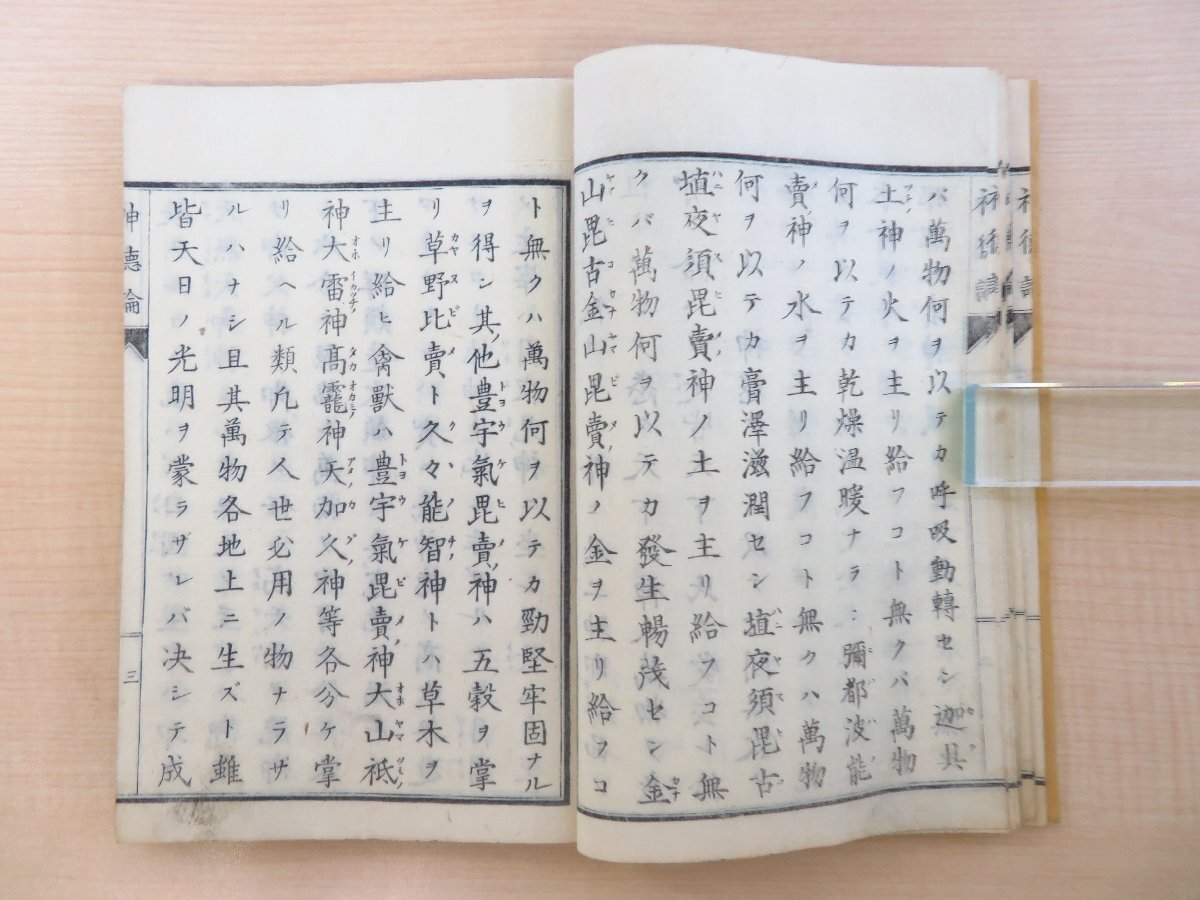 バ萬物何ヲ以テカ呼吸動轉セン迦具
土神ノ火ヲ主リ給フコト無クバ萬物
何ヲ以テカ乾燥温暖ナラン彌都波能
賣神ノ水ヲ主リ給フコト無クハ萬物
何ヲ以テカ膏澤滋潤セン埴夜須毘古
埴夜須毘賣神ノ土ヲ主リ給フコト無
クバ萬物何ヲ以テカ發生暢茂セン金
山毘古金山毘賣神ノ金ヲ主リ給フコ
ト無クハ萬物何ヲ以テカ勁堅牢固ナル
ヲ得ン其他豊宇氣毘賣神ハ五穀ヲ掌
リ草野比賣ト久々能智神トハ草木ヲ
主リ給ヒ禽獸ハ豊宇氣毘賣神大山祇
神大雷神髙龗神天加久神等各分ケ掌
リ給ヘル類凢テ人世必用ノ物ナラザ
ルハナシ且其萬物各地上ニ生ズト雖
皆天日ノ光明ヲ蒙ラザレバ决シテ成
神德論
三